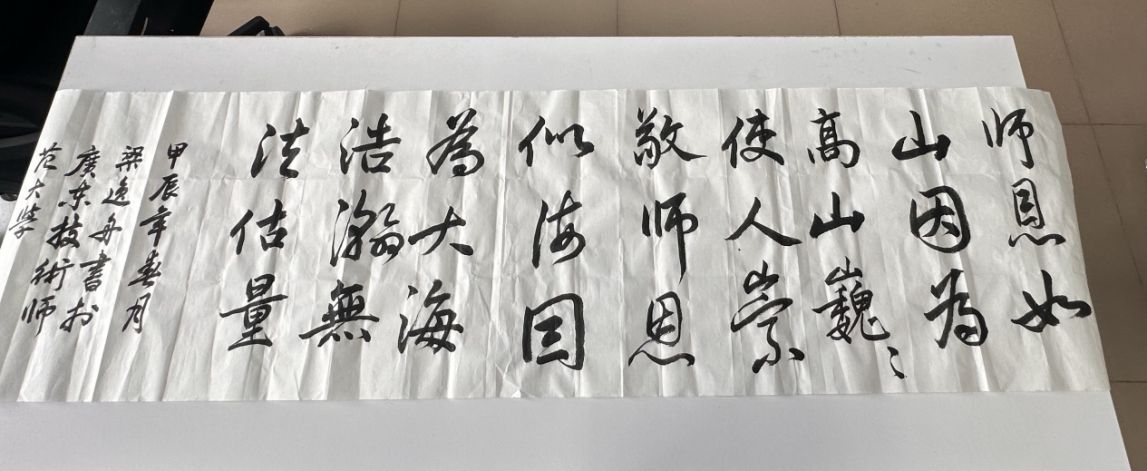 师恩如
山因为
高山巍〻
使人崇
敬师恩
似海因
為大海
浩瀚無
法估量
甲辰年春月
梁逸舟書於
廣东技術师
范大学